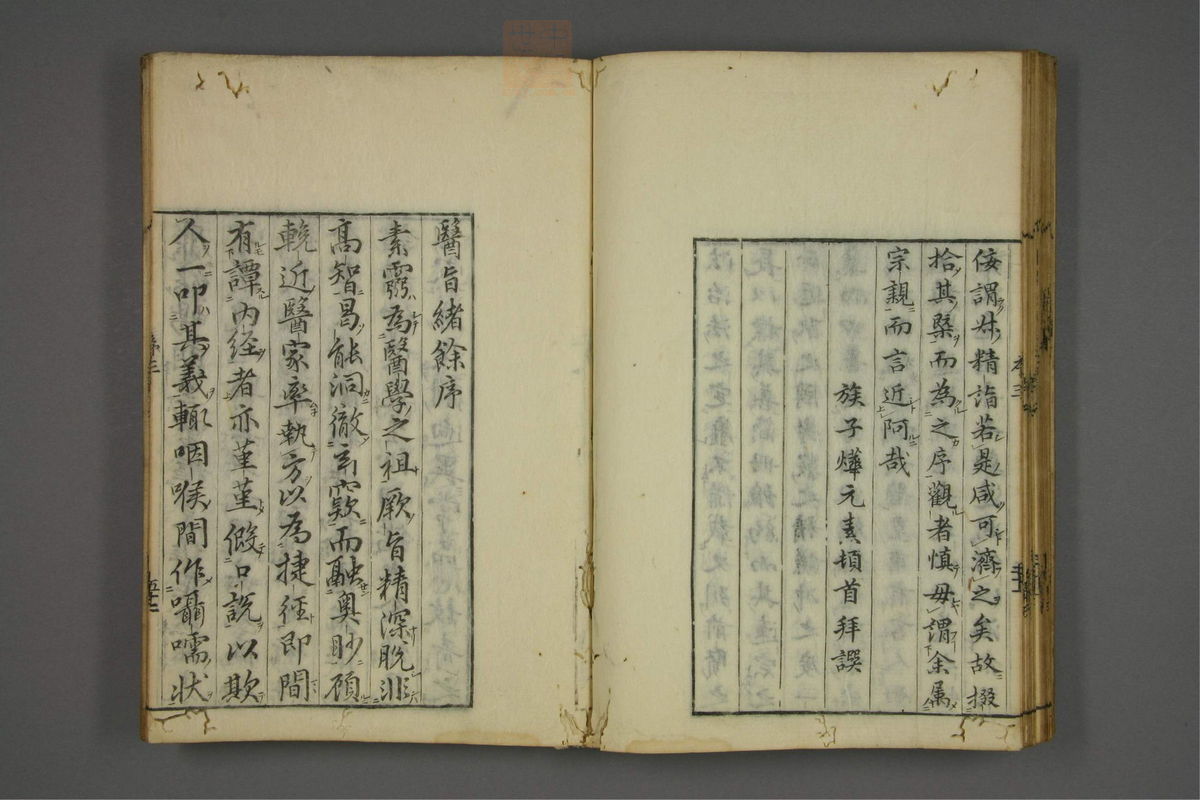 倭謂妙精詣若是咸可濟之矣故掇
拾其槩而為之序觀者慎毋謂余属
宗親而言近阿哉
族子燁元素頓首拜譔
醫旨緒餘序
素霛為醫學之祖厥旨精深脫非
高智曷能洞徹玄窾而融奥眇頋
輓近醫家率執方以為捷径即間
有譚内経者亦堇堇假口說以欺
人一叩其義輒咽喉間作囁嚅状